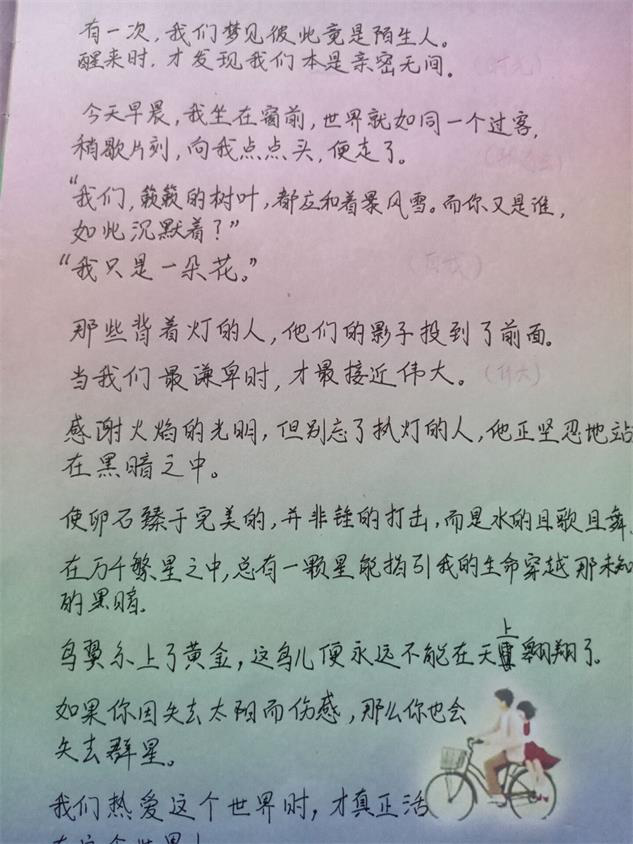 有一次，我们梦见彼此竟是陌生人。
醒来时，才发现我们本是亲密无间。
今天早晨，我坐在窗前，世界就如同一个过客，
稍歇片刻，向我点点头，便走了。
“我们，簌簌的树叶，都应和着暴风雪。而你又是谁，
如此沉默着？”
“我只是一朵花。”
那些背着灯的人，他们的影子投到了前面。
当我们最谦卑时，才最接近伟大。
（伟大）
感谢火焰的光明，但别忘了执灯的人，他正坚忍地站
在黑暗之中。
使卵石臻于完美的，并非锤的打击，而是水的且歌且舞。
在万千繁星之中，总有一颗星能指引我的生命穿越那未知
的黑暗.
鸟翼系上了黄金，这鸟儿便永远不能在天上翱翔了。
如果你因失去太阳而伤感，那么你也会
失去群星。
我们热爱这个世界时，才真正活
在这个世界！